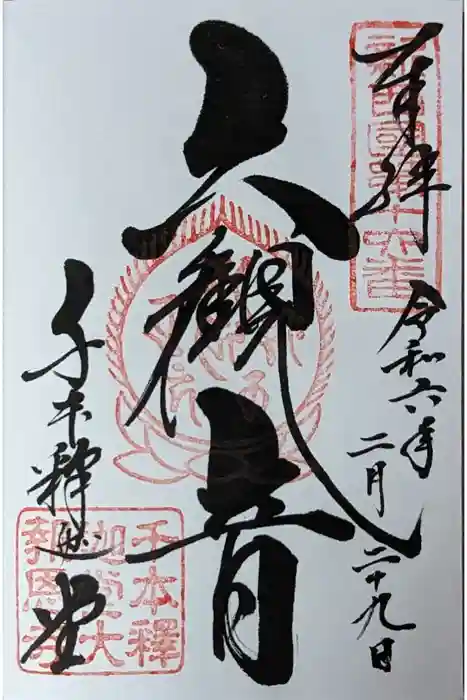 奉拝
令和六年
二月二十九日
六観音
千本釋迦堂
千本釋
迦堂大
報恩寺